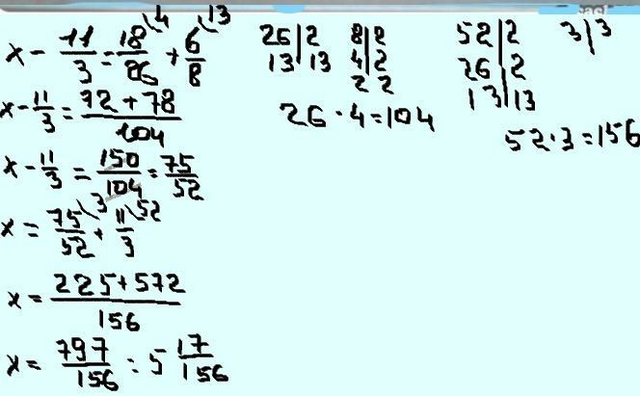 x - 11/3 = 18/26 \4 + 6/8 \13
x - 11/3 = 72 + 78/104
x - 11/3 = 150/104 = 75/52
x = 75/52 \3 + 11/3 \52
x = 225 + 572/156
x = 797/156 = 5 17/156
26|2
13|13
8|2
4|2
2 2
26 · 4 = 104
52|2
26|2
13|13
3|3
52 · 3 = 156